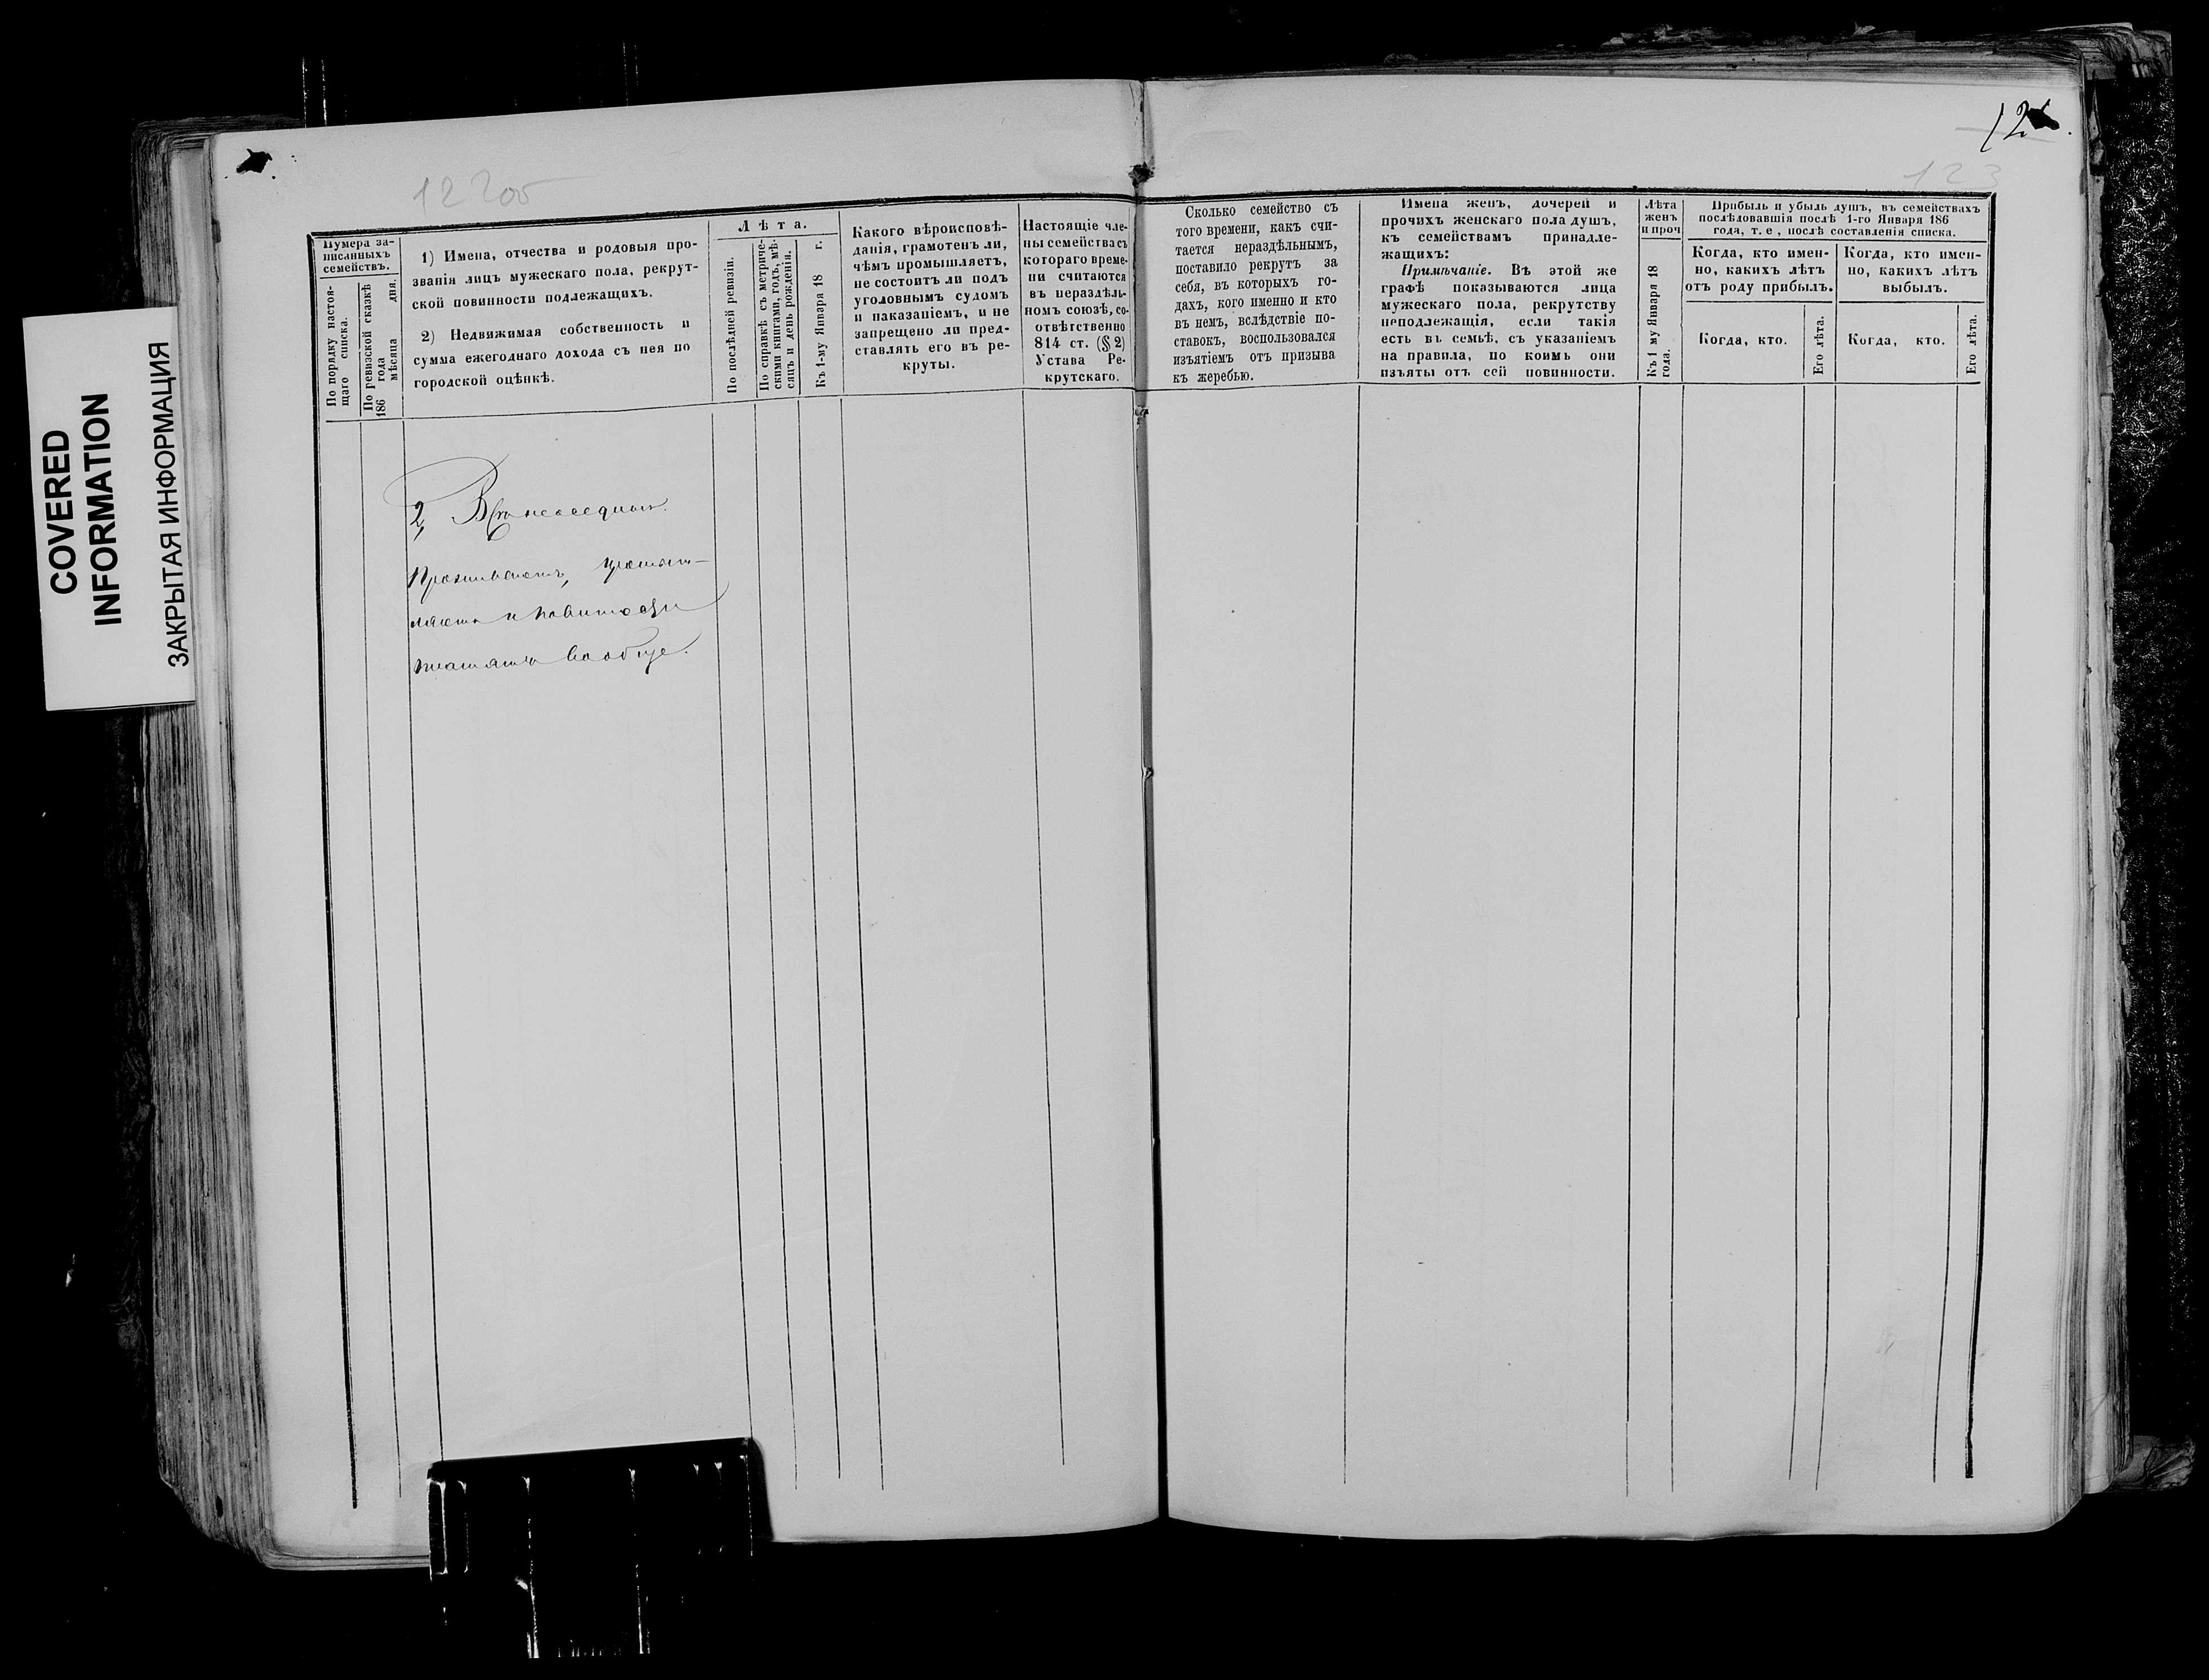 COVERED
INFORMATION
ЗАКРЫТАЯ ИНФОРМАЦИЯ
122 об
Нумера за-
писанныхъ
семействъ.
По порядку настоя-
щаго списка.
По ревизской сказкѣ
186 года
мѣсяца дня.
1) Имена, отчества и родовыя про-
званія лицъ мужескаго пола, рекрут-
ской повинности подлежащихъ.
2) Недвижимая собственность и
сумма ежегоднаго дохода съ нея по
городской оцѣнкѣ.
Лѣта.
По послѣдней ревизіи.
По справкѣ съ метриче-
скими книгами, годъ, мѣ-
сяцъ и день рожденія.
Къ 1-му Января 18 г.
Какого вѣроисповѣ-
данія, грамотенъ ли,
чѣмъ промышляетъ,
не состоитъ ли подъ
уголовнымъ судомъ
и наказаніемъ, и не
запрещено ли пред-
ставлять его въ ре-
круты.
Настоящіе чле-
ны семейства съ
котораго време-
ни считаются
въ нераздѣль-
номъ союзѣ, со-
отвѣтственно
814 ст. (§ 2)
Устава Ре-
крутскаго.
2,
Проживаютъ, промыш-
ляютъ и повинности
платятъ вообще.
12
123
Сколько семейство съ
того времени, какъ счи-
тается нераздѣльнымъ,
поставило рекрутъ за
себя, въ которыхъ го-
дахъ, кого именно и кто
въ немъ, вслѣдствіе по-
ставокъ, воспользовался
изъятіемъ отъ призыва
къ жеребью.
Имена женъ, дочерей и
прочихъ женскаго пола душъ,
къ семействамъ принадле-
жащихъ:
Примѣчаніе. Въ этой же
графѣ показываются лица
мужескаго пола, рекрутству
неподлежащія, если такія
есть въ семьѣ, съ указаніемъ
на правила, по коимъ они
изъяты отъ сей повинности.
Лѣта
женъ
и проч
Къ 1 му Января 18
года.
Прибыль и убыль душъ, въ семействахъ
послѣдовавшія послѣ 1-го Января 186
года, т. е, послѣ составленія списка.
Когда, кто имен-
но, какихъ лѣтъ
отъ роду прибылъ.
Когда, кто.
Его лѣта.
Когда, кто имен-
но, какихъ лѣтъ
выбылъ.
Когда, кто.
Его лѣта.